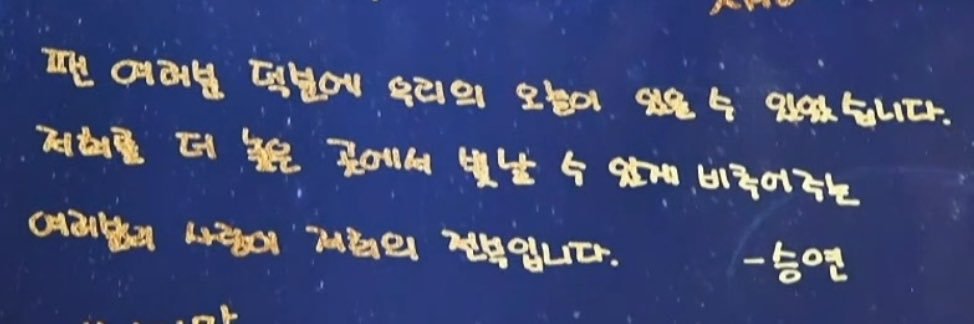 팬 여러분 덕분에 우리의 오늘이 있을 수 있었습니다.
저희를 더 높은 곳에서 빛날 수 있게 비추어주는
여러분의 사랑이 저희의 전부입니다. -승연